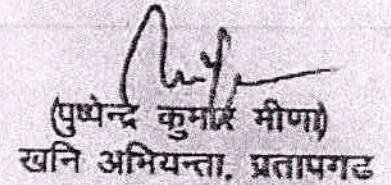 (पुष्पेन्द्र कुमार मीणा)
खनि अभियन्ता, प्रतापगढ